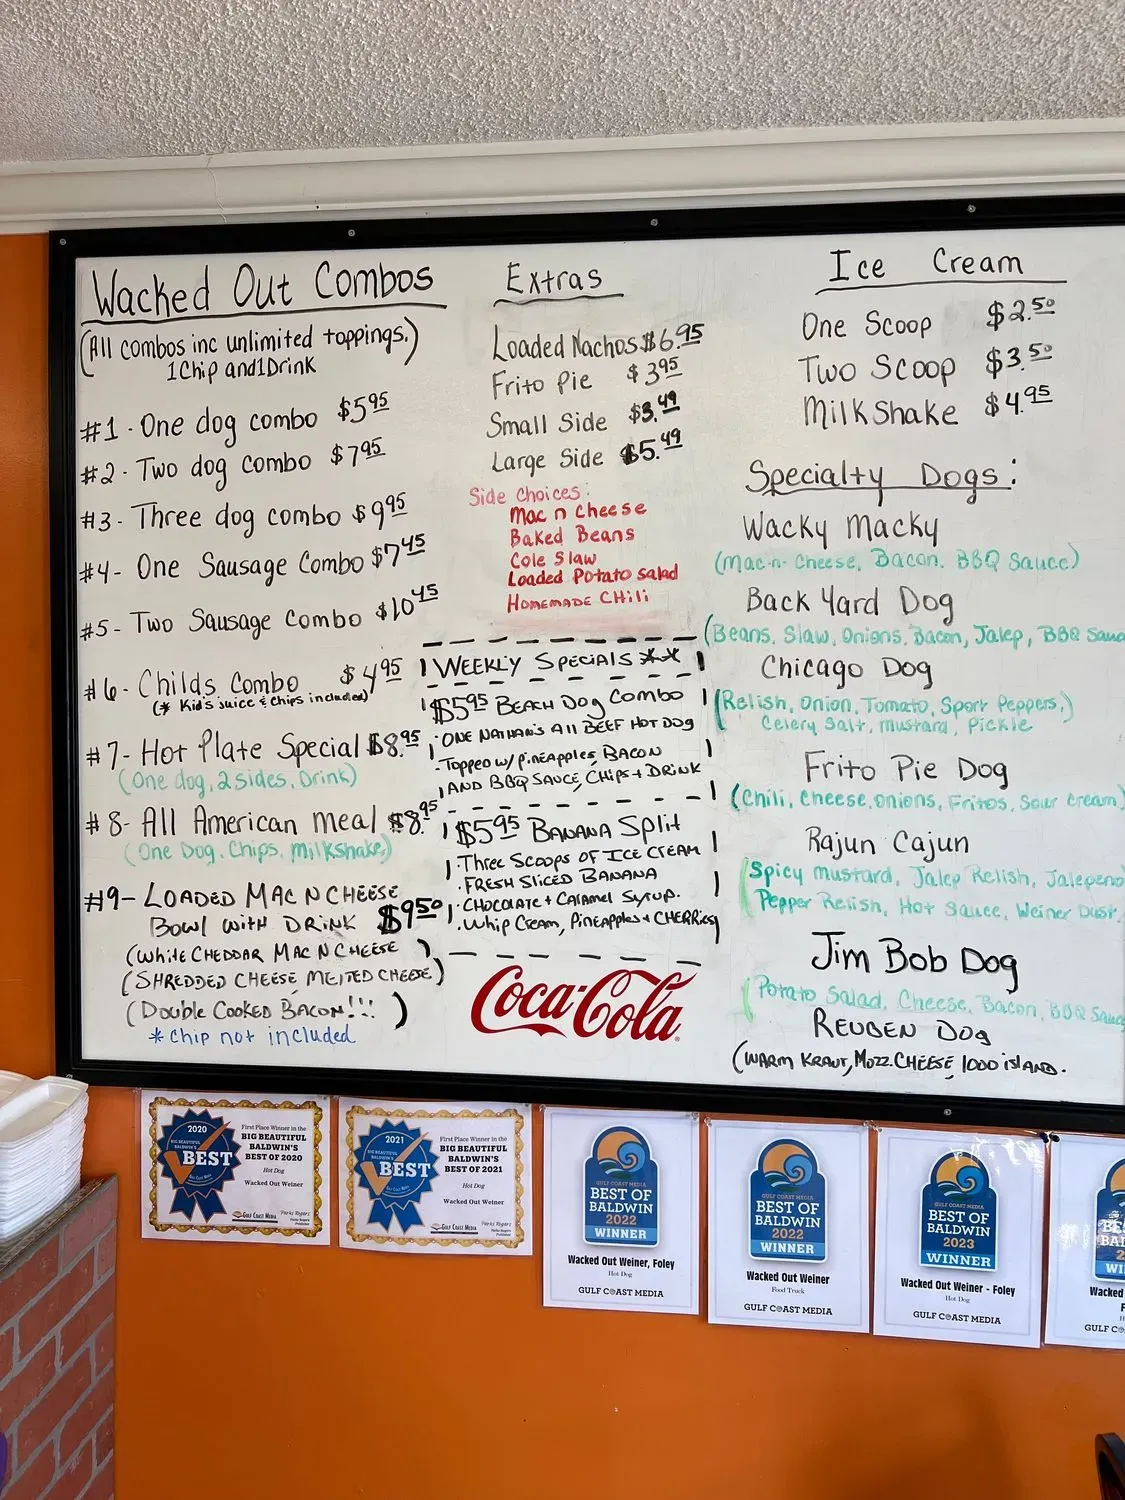 Wacked Out Combos
(All combos inc unlimited toppings.)
1 Chip and 1 Drink
#1 - One dog combo $5.95
#2 - Two dog combo $7.95
#3 - Three dog combo $9.95
#4 - One Sausage Combo $7.45
#5 - Two Sausage Combo $10.45
#6 - Childs Combo $4.95
(* Kid's juice & chips included)
#7 - Hot Plate Special $8.95
(One dog, 2 sides, Drink)
#8 - All American meal $8.95
(One Dog, Chips, milkshake)
#9 - LOADED MAC N CHEESE
BOWL WITH DRINK $9.50
(WHITE CHEDDAR MAC N CHEESE)
(SHREDDED CHEESE, MELTED CHEESE)
(DOUBLE COOKED BACON!!!)
* Chip not included
Extras
Loaded Nachos $6.95
Frito Pie $3.95
Small Side $3.49
Large Side $5.49
Side Choices:
Mac n Cheese
Baked Beans
Cole Slaw
Loaded Potato Salad
HOMEMADE CHILI
WEEKLY SPECIALS **
$5.95 BEACH DOG COMBO
· ONE NATHAN'S ALL BEEF HOT DOG
· TOPPED W/ PINEAPPLES, BACON
AND BBQ SAUCE, CHIPS + DRINK
$5.95 BANANA SPLIT
· THREE SCOOPS OF ICE CREAM
· FRESH SLICED BANANA
· CHOCOLATE + CARAMEL SYRUP.
· WHIP CREAM, PINEAPPLES + CHERRIES
Coca-Cola
Ice Cream
One Scoop $2.50
Two Scoop $3.50
MilkShake $4.95
Specialty Dogs:
Wacky Macky
(Mac-n-Cheese, Bacon. BBQ Sauce)
Back Yard Dog
(Beans, Slaw, Onions, Bacon, Jalep, BBQ
Chicago Dog
(Relish, Onion, Tomato, Sport Peppers,)
Celery Salt, mustard, Pickle
Frito Pie Dog
(Chili, Cheese, onions, Fritos, Sour cream)
Rajun Cajun
Spicy mustard, Jalep Relish, Jalepeno
Pepper Relish, Hot Sauce, Weiner Dust,
Jim Bob Dog
Potato Salad, Cheese, Bacon, BBQ
REUBEN DOG
(WARM KRAUT, MOZZ. CHEESE, 1000 ISLAND.
2020
BIG BEAUTIFUL
BALDWIN'S
BEST
First Place Winner in the
BIG BEAUTIFUL
BALDWIN'S
BEST OF 2020
Hot Dog
Wacked Out Weiner
GULF COAST MEDIA
2021
BIG BEAUTIFUL
BALDWIN'S
BEST
First Place Winner in the
BIG BEAUTIFUL
BALDWIN'S
BEST OF 2021
Hot Dog
Wacked Out Weiner
GULF COAST MEDIA
GULF COAST MEDIA
BEST OF
BALDWIN
2022
WINNER
Wacked Out Weiner, Foley
Hot Dog
GULF COAST MEDIA
GULF COAST MEDIA
BEST OF
BALDWIN
2022
WINNER
Wacked Out Weiner
Food Truck
GULF COAST MEDIA
GULF COAST MEDIA
BEST OF
BALDWIN
2023
WINNER
Wacked Out Weiner - Foley
Hot Dog
GULF COAST MEDIA
Wacked